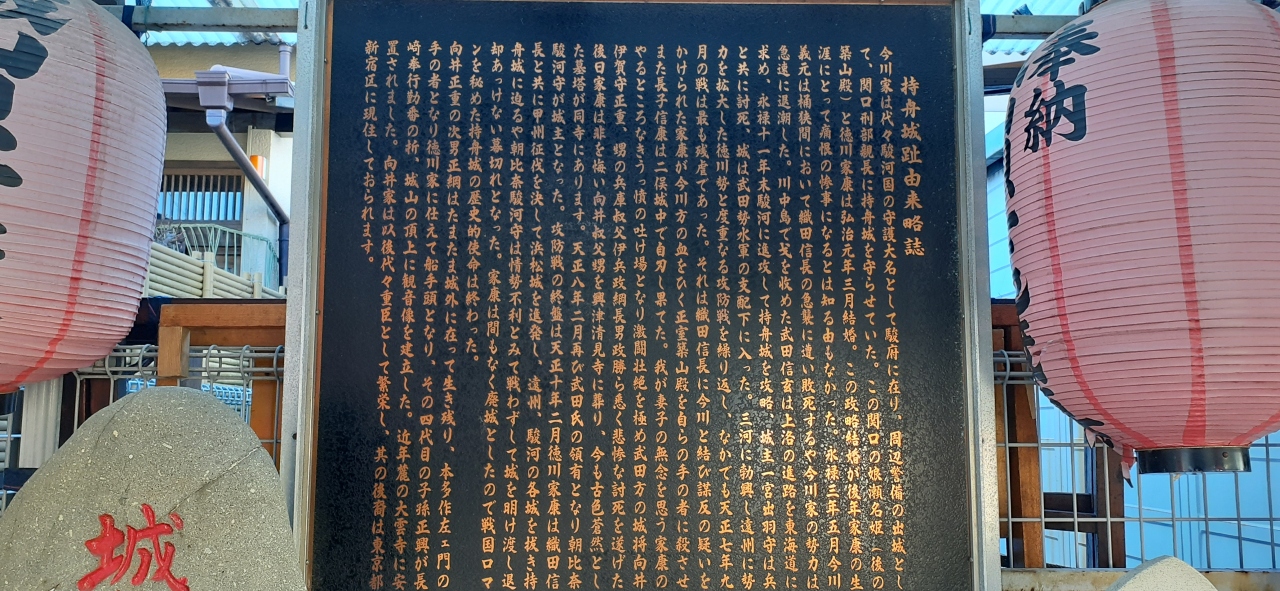 持舟城趾由来略誌
今川家は代々駿河国の守護大名として駿府に在り、周辺警備の出城とし
て、関口刑部親長に持舟城を守らせていた。この関口の娘瀬名姫（後の
築山殿）と徳川家康は弘治元年三月結婚。この政略結婚が後年家康の生
涯にとって痛恨の惨事になるとは知る由もなかった。永禄三年五月今川
義元は桶狭間において織田信長の急襲に遭い敗死するや今川家の勢力は
急速に退潮した。川中島で戈を収めた武田信玄は上洛の進路を東海道に
求め、永禄十一年末駿河に進攻して持舟城を攻略、城主一宮出羽守は兵
と共に討死、城は武田勢水軍の支配下に入った。三河に勃興し遠州に勢
力を拡大した徳川勢と度重なる攻防戦を繰り返し、なかでも天正七年九
月の戦は最も残虐であった。それは織田信長に今川と結び謀反の疑いを
かけられた家康が今川方の血をひく正室築山殿を自らの手の者に殺させ
また長子信康は二俣城中で自刃し果てた。我が妻子の無念を思う家康の
やるところなきうっ憤の吐け場となり激闘壮絶を極め武田方の城将向井
伊賀守正重、甥の兵庫叔父伊兵政綱長男政勝ら悉く悲惨な討死を遂げた
後日家康は非を悔い向井叔父甥を興津清見寺に葬り、今も古色蒼然とし
た墓塔が同寺にあります。天正八年二月再び武田氏の領有となり朝比奈
駿河守が城主となった。攻防戦の終盤は天正十年二月徳川家康は織田信
長と共に甲州征伐を決して浜松城を進発し、遠州、駿河の各城を抜き持
舟城に迫るや朝比奈駿河守は情勢不利とみて戦わずして城を明け渡し退
却あっけない幕切れとなった。家康は間もなく廃城としたので戦国ロマ
ンを秘めた持舟城の歴史的使命は終わった。
向井正重の次男正綱はたまたま城外に在って生き残り、本多作左ェ門の
手の者となり徳川家に仕えて船手頭となり、その四代目の子孫正興が長
崎奉行勤番の折、城山の頂上に観音像を建立した。近年麓の大雲寺に安
置されました。向井家は以後代々重臣として繁栄し、其の後裔は東京都
新宿区に現住しておられます。
奉納
城